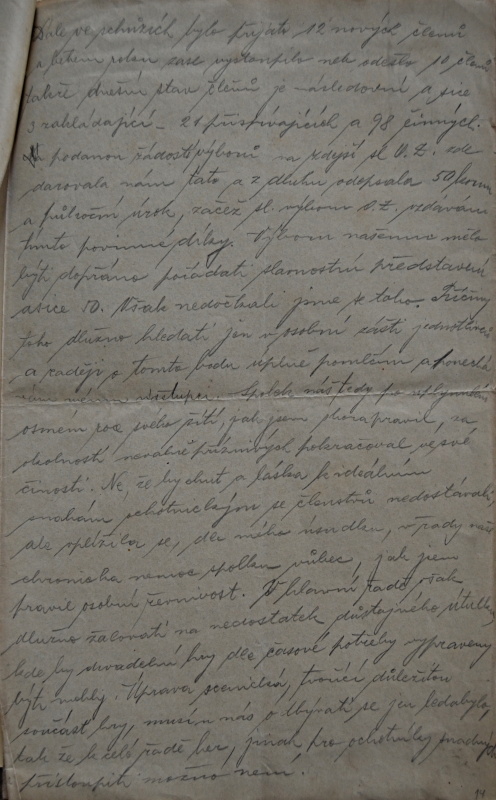 Dále ve schůzích bylo přijato 12 nových členů
a během roku zase vystoupilo neb odešlo 10 členů
takže dnešní stav členů je následovní a sice
3 zakládající - 21 přispívajících a 98 činných.
podanou žádost výborů na zdejší sl. O.Z. zde
darovala nám tato a z dluhu odepsala 50 korun
a půlroční úrok, začež sl. výboru O.Z. vzdávám
tímto povinné díky. Výboru našemu mělo
býti dopřáno pořádati slavnostní představení
a sice 50. Však nedočkali jsme se toho. Příčiny
toho dlužno hledati jen v osobní zášti jednotlivců
a raději o tomto bodu úplně pomlčím a
Spolek náš tedy, po uplynulém
osmém roce svého žití, jak jsem zpravil, za
okolností nevalně příznivých pokračoval ve své
činosti. Ne, že by chuť a láska k ideálním
snahám ochotnickým se členstvu nedostávala,
ale vplížila se, dle mého úsudku, v řady naše
chronická nemoc spolků vůbec, jak jsem
pravil osobní řevnivost. V hlavní řadě však
dlužno žalovati na nedostatek důstojného útulku,
kde by divadelní hry dle časové potřeby vypraveny
býti mohly. Úprava scenická, tvořící důležitou
součást hry, musí u nás obývati se jen ledabylo,
tak že k celé řadě her, jinak pro ochotníky snadných
přistoupiti možno není.
14